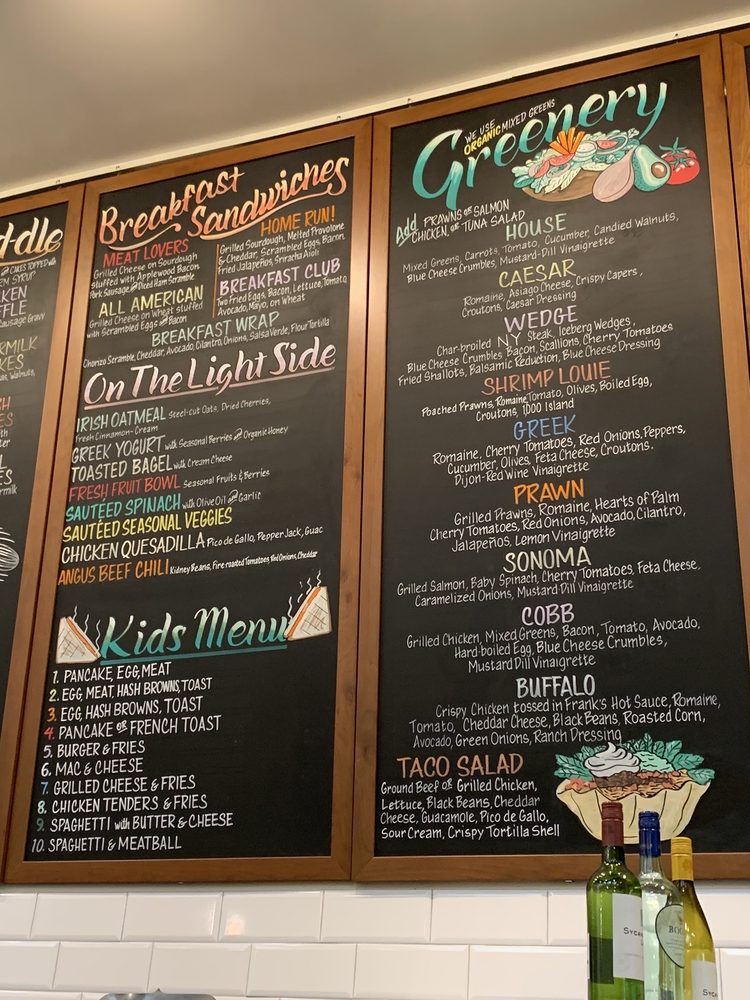 ddle
CAKES TOPPED with
SYRUP
Sausage Gravy
Walnuts,
Breakfast
Sandwiches
MEAT LOVERS
Grilled Cheese on Sourdough
stuffed with Applewood Bacon
Pork Sausage, and Diced Ham Scramble
ALL AMERICAN
Grilled Cheese on Wheat stuffed
with Scrambled Eggs and Bacon
HOME RUN!
Grilled Sourdough, Melted Provolone
& Cheddar, Scrambled Eggs, Bacon,
Fried Jalapeños, Sriracha Aioli
BREAKFAST CLUB
Two Fried Eggs, Bacon, Lettuce, Tomato,
Avocado, Mayo, on Wheat
BREAKFAST WRAP
Chorizo Scramble, Cheddar, Avocado, Cilantro, Onions, Salsa Verde, Flour Tortilla
On The Light Side
IRISH OATMEAL Steel-cut Oats, Dried Cherries,
Fresh Cinnamon-Cream
GREEK YOGURT with Seasonal Berries and Organic Honey
TOASTED BAGEL with Cream Cheese
FRESH FRUIT BOWL Seasonal Fruits & Berries
SAUTÉED SPINACH with Olive Oil and Garlic
SAUTÉED SEASONAL VEGGIES
CHICKEN QUESADILLA Pico de Gallo, Pepper Jack, Guac
ANGUS BEEF CHILI Kidney Beans, Fire-roasted Tomatoes, Red Onions, Cheddar
Kids Menu
1. PANCAKE, EGG, MEAT
2. EGG, MEAT, HASH BROWNS, TOAST
3. EGG, HASH BROWNS, TOAST
4. PANCAKE or FRENCH TOAST
5. BURGER & FRIES
6. MAC & CHEESE
7. GRILLED CHEESE & FRIES
8. CHICKEN TENDERS & FRIES
9. SPAGHETTI with BUTTER & CHEESE
10. SPAGHETTI & MEATBALL
WE USE
ORGANIC MIXED GREENS
Greenery
Add PRAWNS or SALMON
CHICKEN, or TUNA SALAD
HOUSE
Mixed Greens, Carrots, Tomato, Cucumber, Candied Walnuts,
Blue Cheese Crumbles, Mustard-Dill Vinaigrette
CAESAR
Romaine, Asiago Cheese, Crispy Capers,
Croutons, Caesar Dressing
WEDGE
Char-broiled NY Steak, Iceberg Wedges,
Blue Cheese Crumbles, Bacon, Scallions, Cherry Tomatoes
Fried Shallots, Balsamic Reduction, Blue Cheese Dressing
SHRIMP LOUIE
Poached Prawns, Romaine, Tomato, Olives, Boiled Egg,
Croutons, 1,000 Island
GREEK
Romaine, Cherry Tomatoes, Red Onions, Peppers,
Cucumber, Olives, Feta Cheese, Croutons.
Dijon-Red Wine Vinaigrette
PRAWN
Grilled Prawns, Romaine, Hearts of Palm
Cherry Tomatoes, Red Onions, Avocado, Cilantro,
Jalapeños, Lemon Vinaigrette
SONOMA
Grilled Salmon, Baby Spinach, Cherry Tomatoes, Feta Cheese,
Caramelized Onions, Mustard Dill Vinaigrette
COBB
Grilled Chicken, Mixed Greens, Bacon, Tomato, Avocado,
Hard-boiled Egg, Blue Cheese Crumbles,
Mustard Dill Vinaigrette
BUFFALO
Crispy Chicken tossed in Frank's Hot Sauce, Romaine,
Tomato, Cheddar Cheese, Black Beans, Roasted Corn,
Avocado, Green Onions, Ranch Dressing
TACO SALAD
Ground Beef or Grilled Chicken,
Lettuce, Black Beans, Cheddar
Cheese, Guacamole, Pico de Gallo,
Sour Cream, Crispy Tortilla Shell